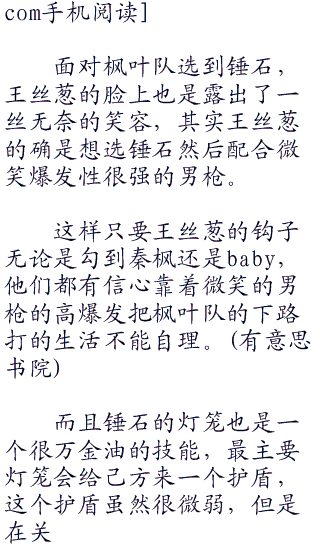 com手机阅读]
面对枫叶队选到锤石，
王丝葱的脸上也是露出了一
丝无奈的笑容，其实王丝葱
的确是想选锤石然后配合微
笑爆发性很强的男枪。
这样只要王丝葱的钩子
无论是勾到秦枫还是baby，
他们都有信心靠着微笑的男
枪的高爆发把枫叶队的下路
打的生活不能自理。(有意思
书院)
而且锤石的灯笼也是一
个很万金油的技能，最主要
灯笼会给己方来一个护盾，
这个护盾虽然很微弱，但是
在关